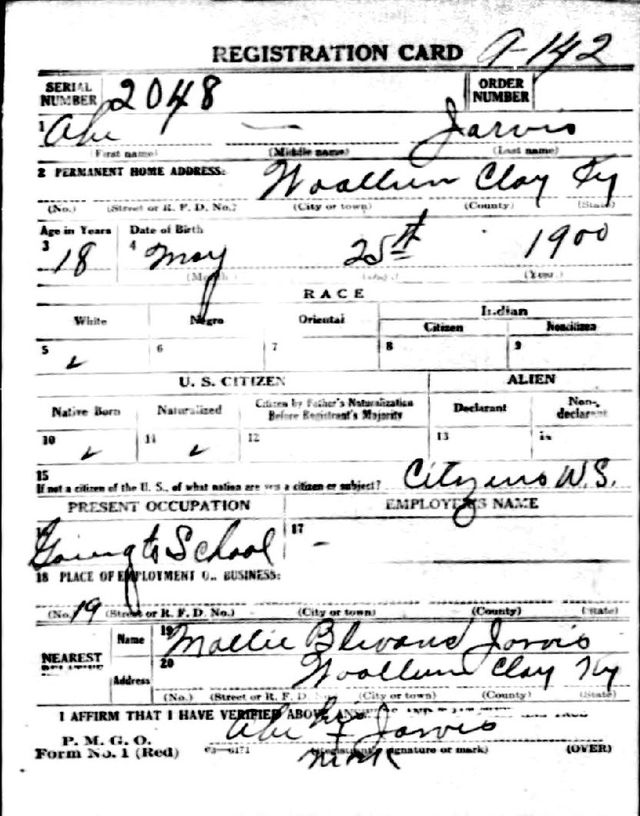 REGISTRATION CARD 9-142
SERIAL NUMBER 2048 ORDER NUMBER
1 Abe — Jarvis
(First name) (Middle name) (Last name)
2 PERMANENT HOME ADDRESS: Woollum Clay Ky
(No.) (Street or R. F. D. No.) (City or town) (County) (State)
Age in Years Date of Birth
3 18 4 May 25th 1900
(Month) (Day) (Year)
RACE
White Negro Oriental Indian
Citizen Noncitizen
5 ✓ 6 7 8 9
U. S. CITIZEN ALIEN
Native Born Naturalized Citizen by Father's Naturalization Before Registrant's Majority Declarant Non-declarant
10 ✓ 11 ✓ 12 13 14
15
If not a citizen of the U. S., of what nation are you a citizen or subject? Cityzens W.S.
PRESENT OCCUPATION EMPLOYER'S NAME
Going to School 17 –
18 PLACE OF EMPLOYMENT OR BUSINESS:
19
(No.) (Street or R. F. D. No.) (City or town) (County) (State)
NEAREST RELATIVE Name 19 Mollie Jarvis
Address 20 Woollum Clay Ky
(No.) (Street or R. F. D. No.) (City or town) (County) (State)
I AFFIRM THAT I HAVE VERIFIED ABOVE
Abe his Jarvis
P. M. G. O.
Form No. 1 (Red) 03—6171 (Registrant's signature or mark) (OVER)
mark